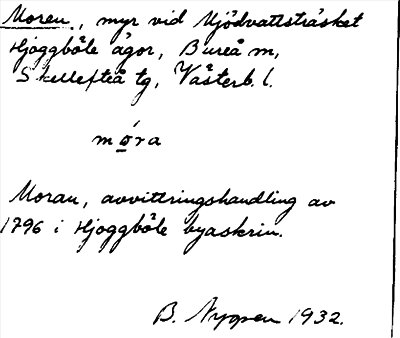 Moren, myr vid Mjödvattsträsket
Hjoggböle ägor, Bureå m,
Skellefteå tg, Västerb. l.
móra
Moran, avvittringshandling av
1796 i Hjoggböle byaskrin.
B. 1932.